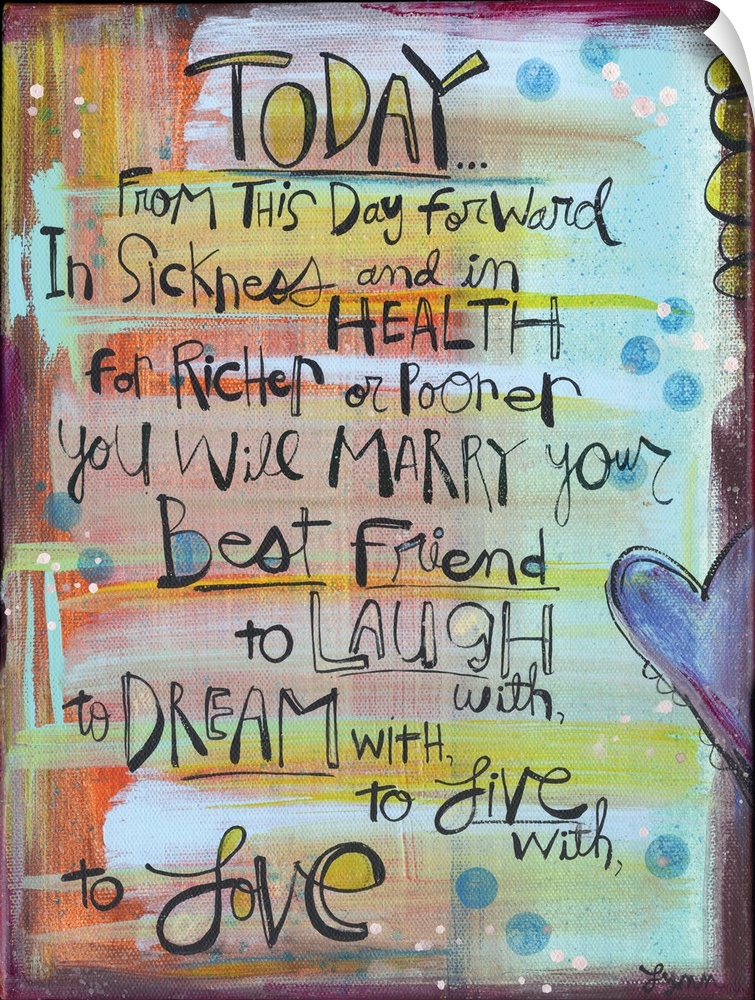 TODAY...
From THIS Day forward
In Sickness and in
HEALTH
for Richer or Pooorer
you Will MARRY your
Best friend
to LAUGH
with,
to DREAM with,
to Live
with,
to Love
Lynn